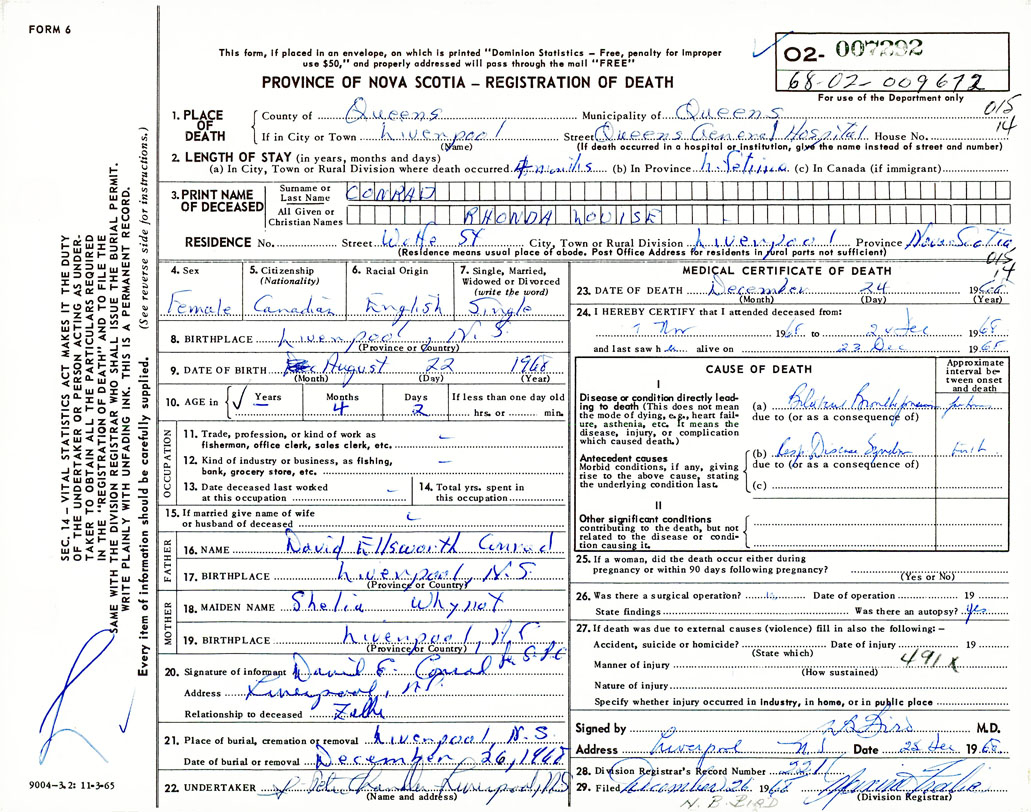 FORM 6
This form, if placed in an envelope, on which is printed "Dominion Statistics – Free, penalty for improper
use $50," and properly addressed will pass through the mail "FREE"
PROVINCE OF NOVA SCOTIA – REGISTRATION OF DEATH
02- 007292
68-02-009672
For use of the Department only
015
14
1. PLACE OF DEATH
County of Queens Municipality of Queens
If in City or Town Liverpool Street Queens General Hospital House No.
(Name) (If death occurred in a hospital or institution, give the name instead of street and number)
2. LENGTH OF STAY (in years, months and days)
(a) In City, Town or Rural Division where death occurred 4 months (b) In Province (c) In Canada (if immigrant)
3. PRINT NAME OF DECEASED
Surname or Last Name CONRAD
All Given or Christian Names RHONDA LOUISE
RESIDENCE No. Street St City, Town or Rural Division Liverpool Province Nova Scotia
(Residence means usual place of abode. Post Office Address for residents in rural parts not sufficient)
015
14
4. Sex 5. Citizenship (Nationality) 6. Racial Origin 7. Single, Married, Widowed or Divorced (write the word)
Female Canadian English Single
8. BIRTHPLACE Liverpool, N.S.
(Province or Country)
9. DATE OF BIRTH August 22 1968
(Month) (Day) (Year)
10. AGE in Years Months Days If less than one day old
4 2 hrs. or min.
OCCUPATION
11. Trade, profession, or kind of work as fisherman, office clerk, sales clerk, etc. –
12. Kind of industry or business, as fishing, bank, grocery store, etc. –
13. Date deceased last worked at this occupation –
14. Total yrs. spent in this occupation
15. If married give name of wife or husband of deceased
FATHER
16. NAME David Ellsworth Conrad
17. BIRTHPLACE Liverpool, N.S.
(Province or Country)
MOTHER
18. MAIDEN NAME Shelia Whynot
19. BIRTHPLACE Liverpool, N.S.
(Province or Country)
20. Signature of informant David E. Conrad
Address Liverpool, N.S.
Relationship to deceased
21. Place of burial, cremation or removal Liverpool, N.S.
Date of burial or removal December 26, 1968
22. UNDERTAKER Chandler Liverpool, NS
(Name and address)
MEDICAL CERTIFICATE OF DEATH
23. DATE OF DEATH December 24 1968
(Month) (Day) (Year)
24. I HEREBY CERTIFY that I attended deceased from:
Nov 1968 to 24 Dec 1968
and last saw her alive on 23 Dec 1968
CAUSE OF DEATH
Approximate interval between onset and death
I
Disease or condition directly leading to death (This does not mean the mode of dying, e.g., heart failure, asthenia, etc. It means the disease, injury, or complication which caused death.)
(a) Bilateral Bronchopneumonia
due to (or as a consequence of)
Antecedent causes
Morbid conditions, if any, giving rise to the above cause, stating the underlying condition last.
(b) Resp. Distress Syndrome
due to (or as a consequence of)
(c)
II
Other significant conditions
contributing to the death, but not related to the disease or condition causing it.
25. If a woman, did the death occur either during
pregnancy or within 90 days following pregnancy?
(Yes or No)
26. Was there a surgical operation? Date of operation 19
State findings Was there an autopsy? yes
27. If death was due to external causes (violence) fill in also the following: –
Accident, suicide or homicide? Date of injury 19
(State which)
491 x
Manner of injury
(How sustained)
Nature of injury
Specify whether injury occurred in industry, in home, or in public place
Signed by M.D.
Address Liverpool N.S Date Dec 1968
28. Division Registrar's Record Number 221
29. Filed December 26 1968
(Division Registrar)
SEC. 14 – VITAL STATISTICS ACT MAKES IT THE DUTY
OF THE UNDERTAKER OR PERSON ACTING AS UNDER-
TAKER TO OBTAIN ALL THE PARTICULARS REQUIRED
IN THE "REGISTRATION OF DEATH" AND TO FILE THE
SAME WITH THE DIVISION REGISTRAR WHO SHALL ISSUE THE BURIAL PERMIT.
WRITE PLAINLY WITH UNFADING INK. THIS IS A PERMANENT RECORD.
Every item of information should be carefully supplied. (See reverse side for instructions.)
9004–3.2: 11-3-65